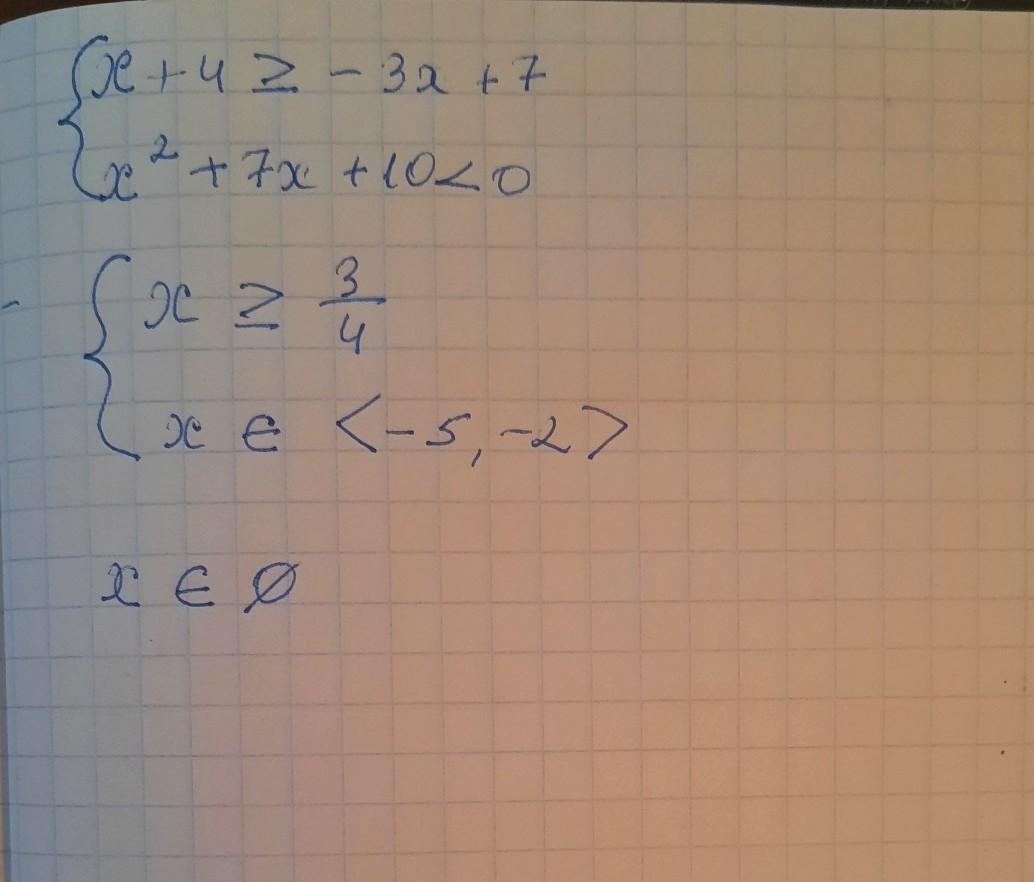 {x + 4 ≥ - 3x + 7
x² + 7x + 10 < 0
{x ≥ 3/4
x ∈ <-5, -2>
x ∈ ∅